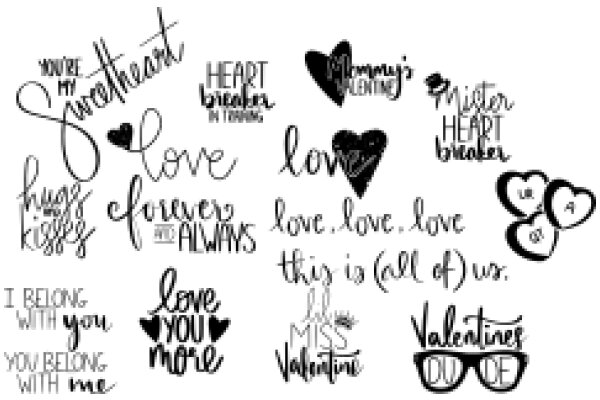 YOU'RE
MY
Sweetheart
HEART
breaker
IN TRAINING
Mommy's
VALENTINE
Mister
HEART
breaker
love
love
hugs
kisses
forever
AND ALWAYS
love, love, love
this is (all of) us.
UR
A
QT
I BELONG
WITH you
YOU BELONG
WITH me
love
YOU
more
lil
MISS
Valentine
Valentines
DUDE